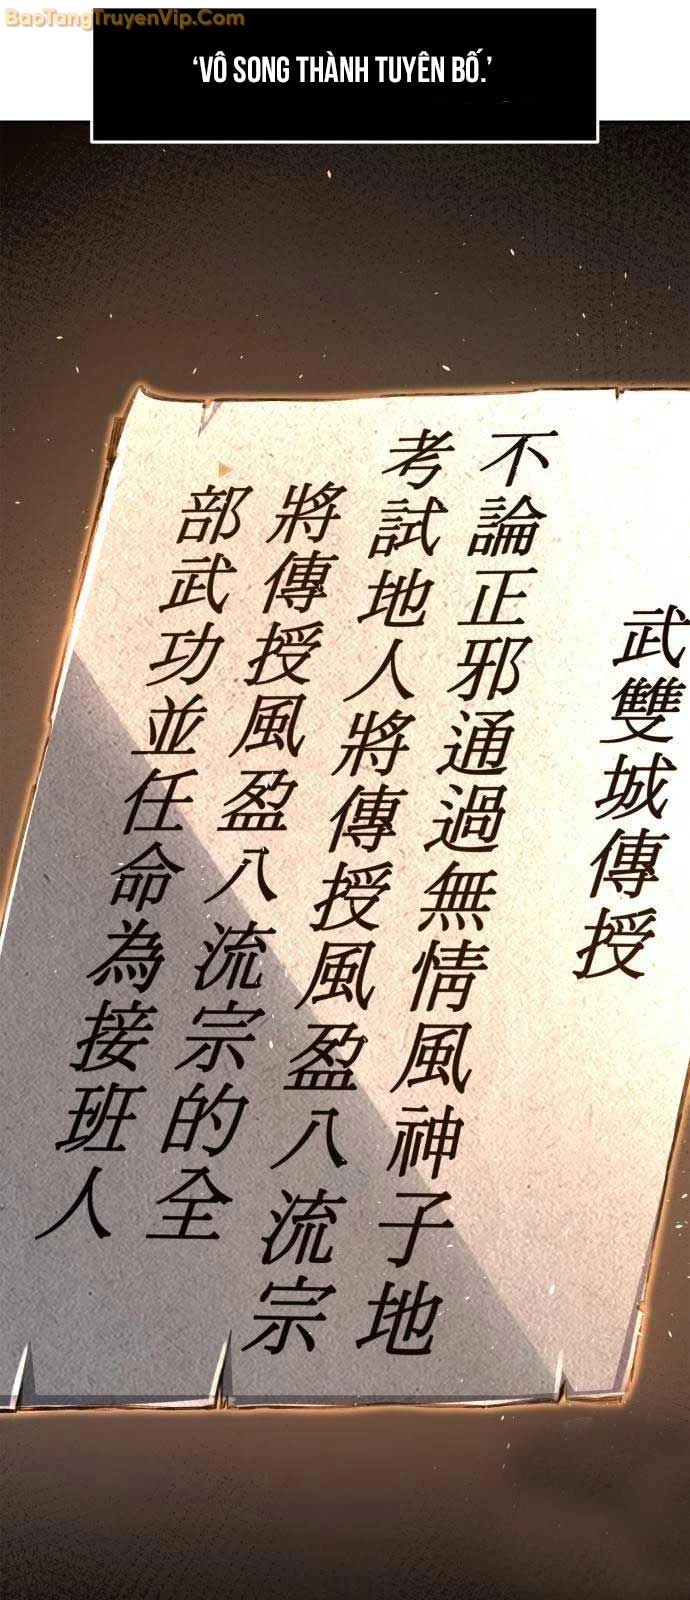 BaoTangTruyenVip.Com
'VÔ SONG THÀNH TUYÊN BỐ.'
武雙城傳授
不論正邪通過無情風神子地
考試地人將傳授風盈八流宗
將傳授風盈八流宗的全
部武功並任命為接班人